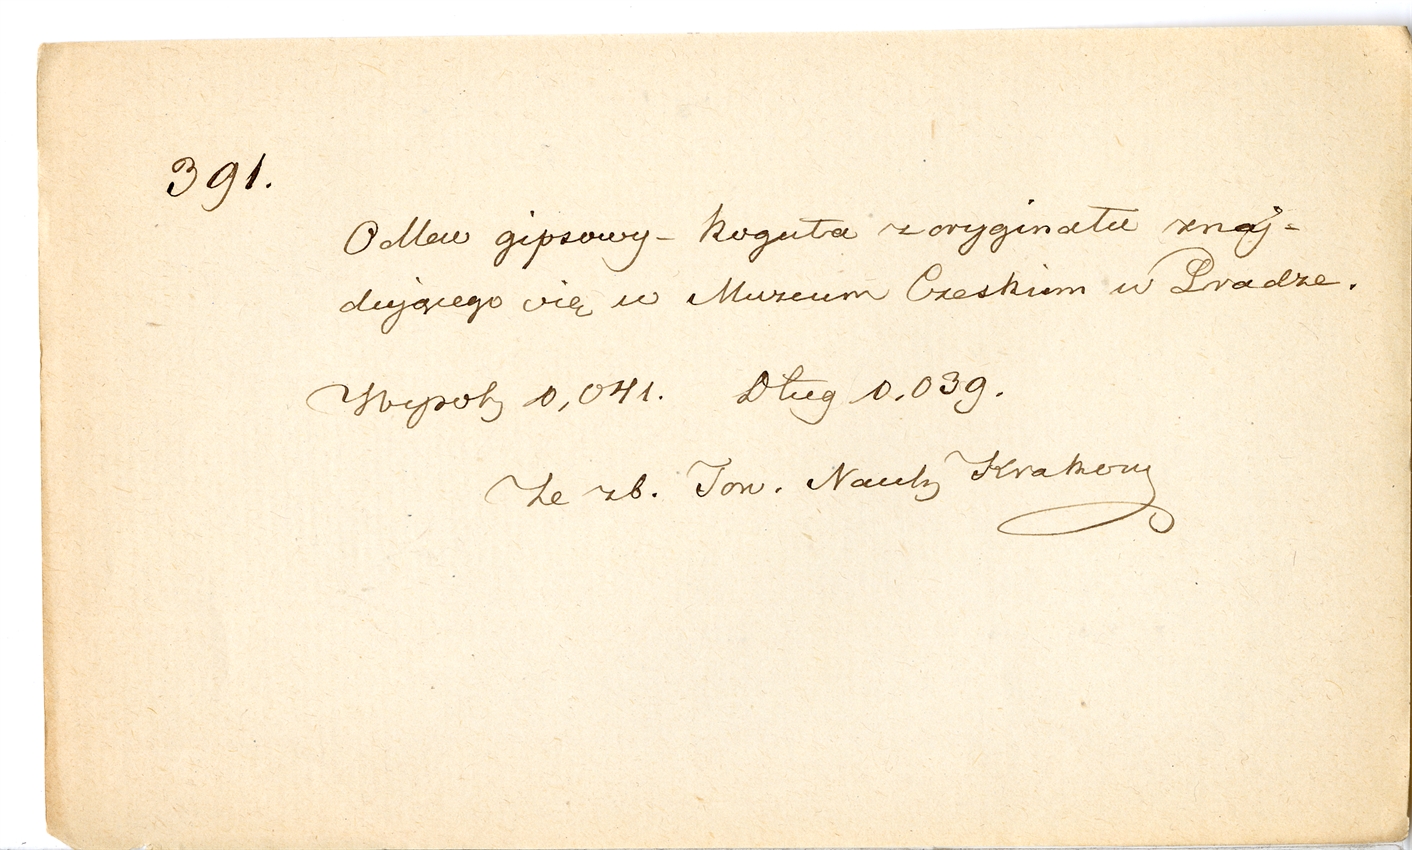 391.
Odlew gipsowy - koguta z oryginału znaj-
dującego się w Muzeum Czeskiem w Pradze.
Wysok 0,041. Dług 0,039.
Ze zb. Tow. Nauk Krakow